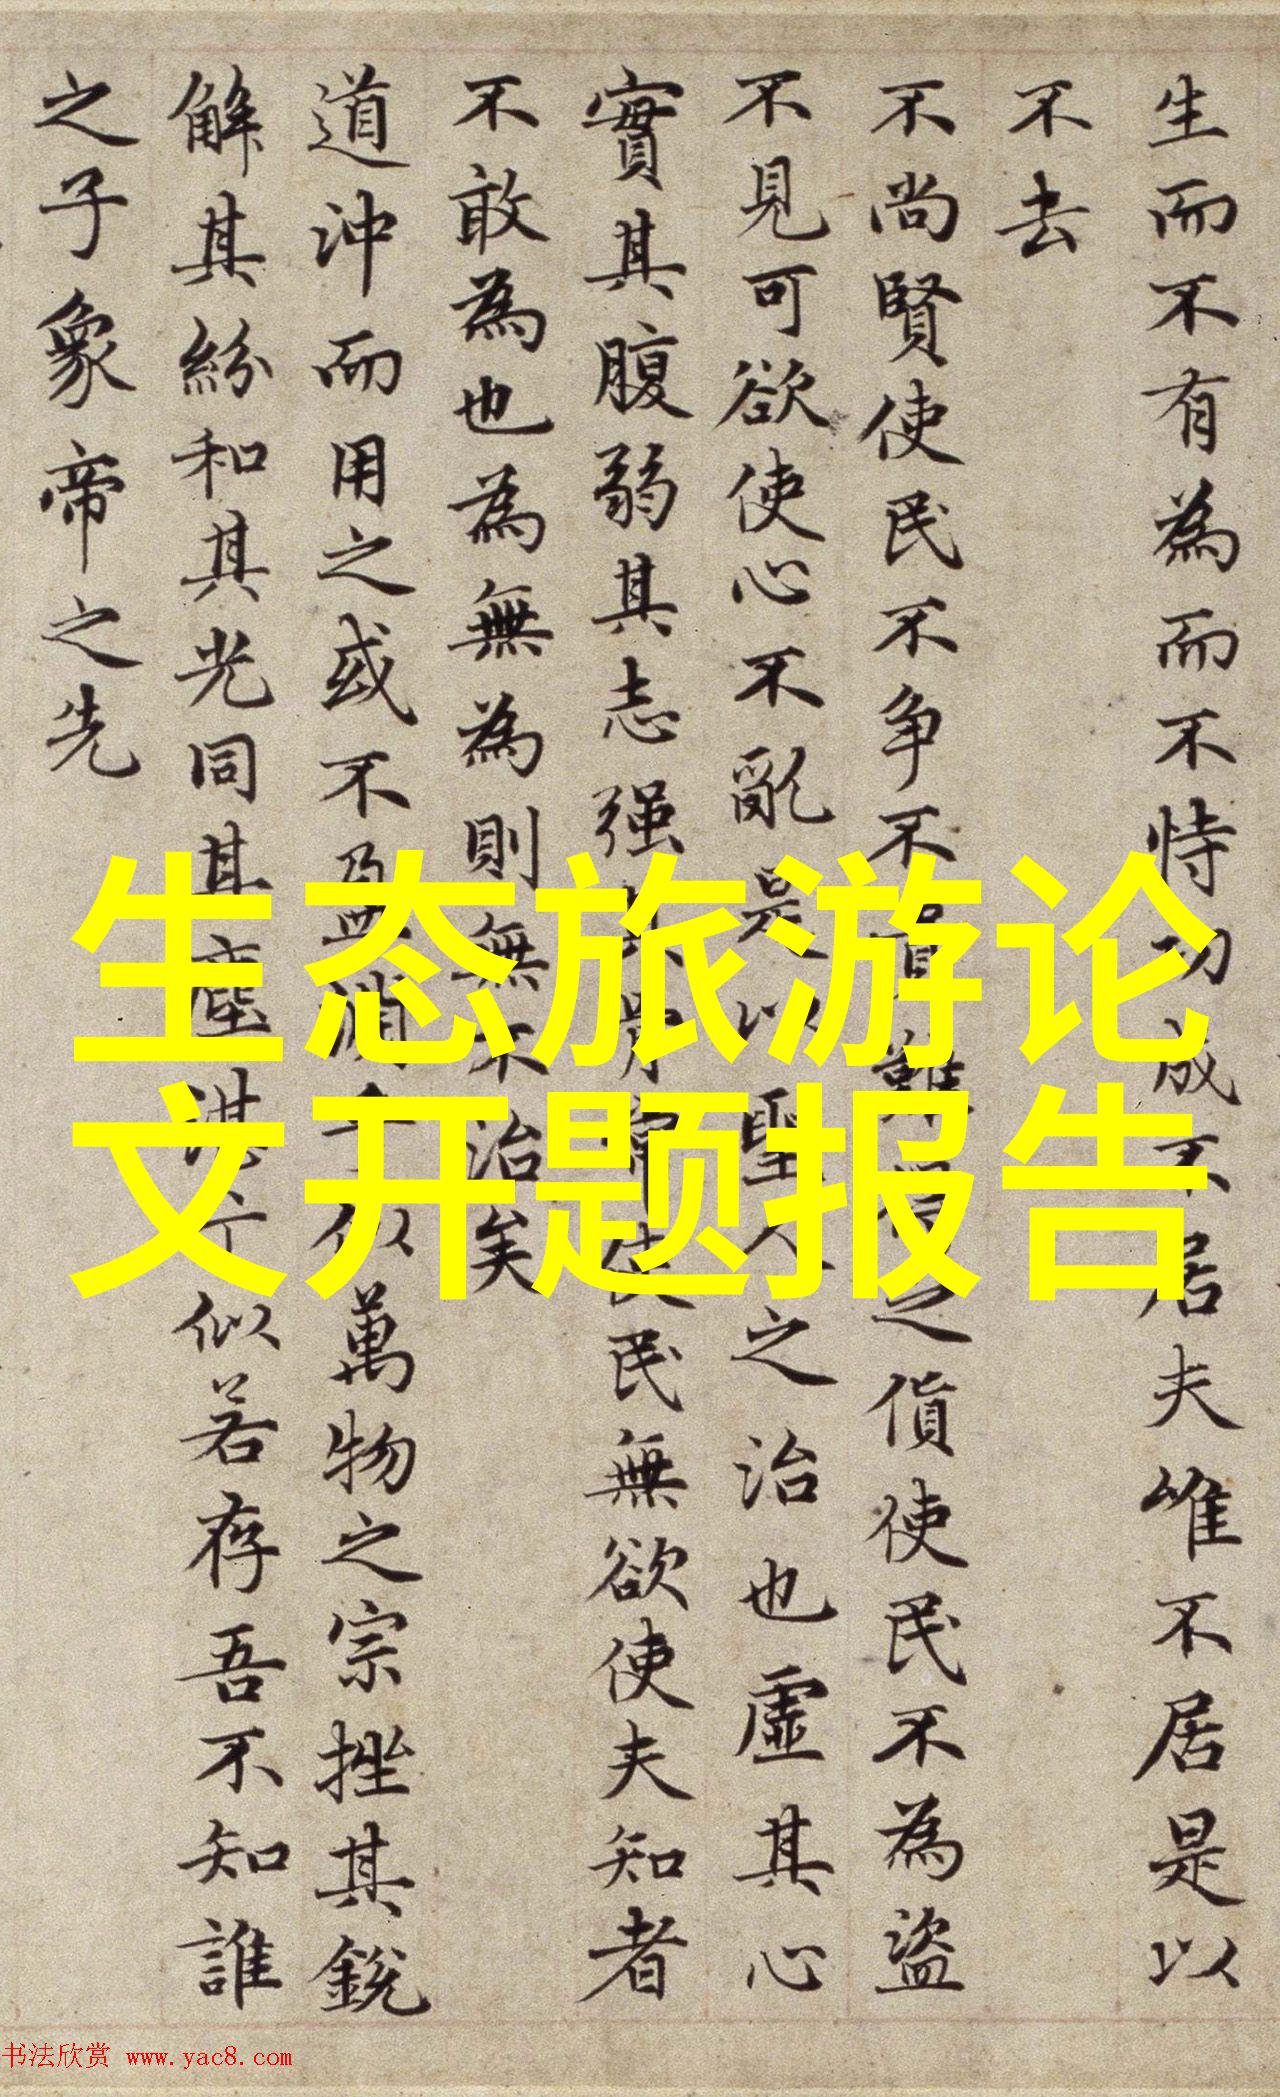 生而不有為而不恃功成不居夫唯不居是以
不去
不尚賢使民不爭不貴難得之貨使民不為盜
不見可欲使心不亂是以聖人之治也虛其心
實其腹弱其志强其骨常使民無欲使夫知者
不敢為也為無為則無不治矣
道沖而用之或不盈淵兮似萬物之宗挫其銳
解其紛和其光同其塵湛兮似若存吾不知誰
之子象帝之先
生态旅游论
文开题报告
书法欣赏 www.yac8.com